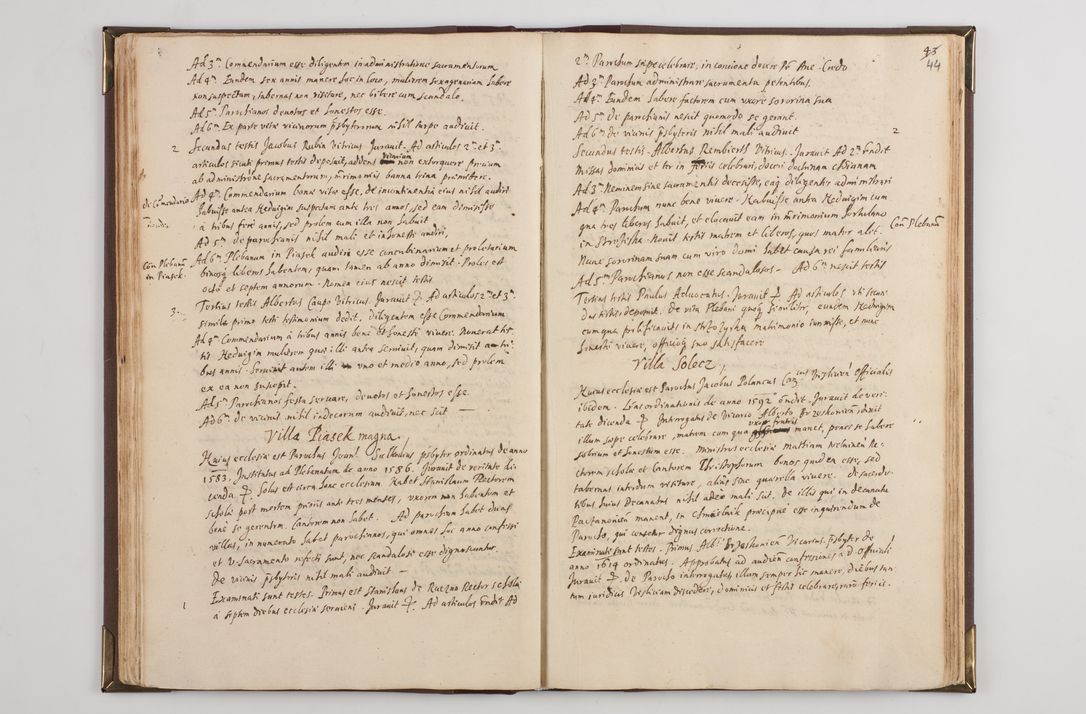 Ad 3m Comendarium esse diligentem in administratione sacramentorum
Ad 4m Eundem sex annis manere hic in loco, mulierem sexagenariam habere
non suspectam, tabernas non visitare, nec bibere cum scandalo.
Ad 5m Parochianos deuotos et honestos esse.
Ad 6m Ex parte vitæ vicinorum psbyterorum nihil turpe audiuit.
2 Secundus testis Jacobus Vitricus Jurauit. Ad articulos 2m et 3m
articulos sicuti primus testis deposuit, addens non extorquere precium
ab administrõne sacramentorum, mrimoniis banna trina præmittere.
de Comẽdario Ad 4m Commendarium bonæ vitæ esse, de incontinentia eius nihil audiri
habuisse antea Heduigim suspectam ante tres annos, sed eam demisisse
a tribus fere annis, sed prolem cum illa non habuit
Ad 5m de parochianis nihil mali et inhonesti audiri,
Con Plebanũ in Piasek Ad 6m Plebanum in Piasek audiri esse concubinarium et proletarium
binosq liberos habentem, quam tamen ab anno dimisit. Proles est
octo et septem annorum. Nomen eius nescit testis
3. Tertius testis Albertus Vitricus. Jurauit. Ad articulos 2m et 3m
simile primo testi testimonium dedit. diligentem esse Commendarium
Ad 4m Commendarium a tribus annis bene et honeste viuere. Numerat tes
tis Heduigim mulierem quæ illi antea seruiuit, quam dimisit a tri
bus annis. Seruiuit autem illi vno et medio anno, sed prolem
ex ea non suscepit.
Ad 5m Parochianos festa seruare, deuotos et honestos esse.
Ad 6m de vicinis nihil indecorum audiuit, nec scit —
Villa Piasek magna
Huius ecclesiæ est Parochus Joan! psbyter ordinatus de anno
1583. Institutus ad Plebanatum de anno 1586. Jurauit de veritate di
cenda. Solus est circa hanc ecclesiam. Habet Stanislaum Rectorem
scholæ post mortem prioris ante tres menses, vxorem non habentem et
bene se gerentem. Cantorem non habet. Ad parochiam habet duas
villas, in numerato habet parochianos, qui omnes hoc anno confessi
et V. Sacramento refecti sunt, nec scandalosi esse dignoscuntur
De vicinis psbyteris nihil mali audiuit —
Examinati sunt testes. Primus est Stanislaus de Rector scholæ
1 a septem diebus ecclesiæ seruiens. Jurauit. Ad articulos rndit Ad
43
44
2m Parochum sæpe celebrare, in concione docere Pr Aue Credo
Ad 3m Parochum administrare sacramenta petentibus.
Ad 4m Eundem habere factorem cum vxore sororina sua
Ad 5m De parochianis nescit quomodo se gerant.
Ad 6m de vicinis psbyteris nihil mali audiuit
2 Secundus testis Albertus Rembierts Vitricus. Jurauit Ad 2m rndit
Missas dominicis et ter in feriis celebrari, doceri doctrinam christianam
Ad 3m Neminem sine sacramentis decessisse, eaq diligenter administrari
Ad 4m Parochum nunc bene viuere. Habuisse antea Heduigim cum
qua tres liberos habuit, et elocauit eam in mrimonium hortulano
Con Plebanũ in Strosiska. Nouit testis matrem et liberos, quos mater alit.
Nunc sororinam suam cum viro domi habet causa rei familiaris
Ad 5m Parochianus non esse scandalosos — Ad 6m nescit testis
Tertius testis Paulus Aduocatus. Jurauit. Ad articulos vti secun
dus testis deposuit. De vita Plebani quoq similiter, eundem Heduigim
eumque prolificauit in matrimonio iunxisse, et nunc
honeste viuere, officioq suo satisfacere
Villa Solecz
Huius ecclesiæ est Parochus Jacobus Polancus Can.cus Visliceñ Officialis
ibidem. Lras ordinationis de anno 1592 õndit. Jurauit de veri
tate dicenda. Interrogatus de Vicario Alberto dixit
illum sæpe celebrare, matrem cum qua vxor fratris manet, penes se habere
sobrium et honestum esse. Ministros ecclesiæ Re
ctorem scholæ et Cantorem Christophorum bonos quidem esse, sed
tabernas interdum visitare, alius sine quærella viuere. de sacerdo
tibus huius Decanatus nihil adeo mali scit. de illis qui in decanatu
Pacnanonień manent, in Chmielnik præcipue esse inquirendum de
Parocho, qui censetur dignus correctione.
Examinati sunt testes. Primus Alb! Vicarius. Psbyter de
anno 1614 ordinatus. Approbatus ad audiẽn confessiones a d. Officiali
Jurauit, de Parocho interrogatus, illum semper hic manere, diebus tan
tum iuridicis Visliciam discedere, dominicis et festis celebrare, raro feriis.